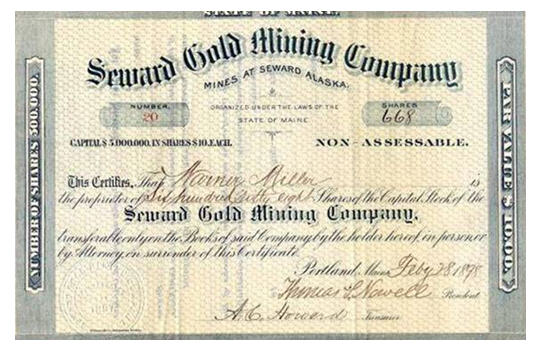 STATE OF MAINE.
Seward Gold Mining Company
MINES AT SEWARD ALASKA.
NUMBER.
20
ORGANIZED UNDER THE LAWS OF THE
STATE OF MAINE
SHARES
668
CAPITAL $ 5.000.000. IN SHARES $ 10. EACH.
NON-ASSESSABLE.
NUMBER OF SHARES 500.000.
PAR VALUE $ 10.00.
This Certifies, That Warner Miller is
the proprietor of Six hundred sixty eight Shares of the Capital Stock of the
Seward Gold Mining Company,
transferable only on the Books of said Company by the holder hereof, in person or
by Attorney, on surrender of this Certificate.
Portland, Maine, Feby 28 1898
Thomas S. Nowell President
A. C. Howard Treasurer